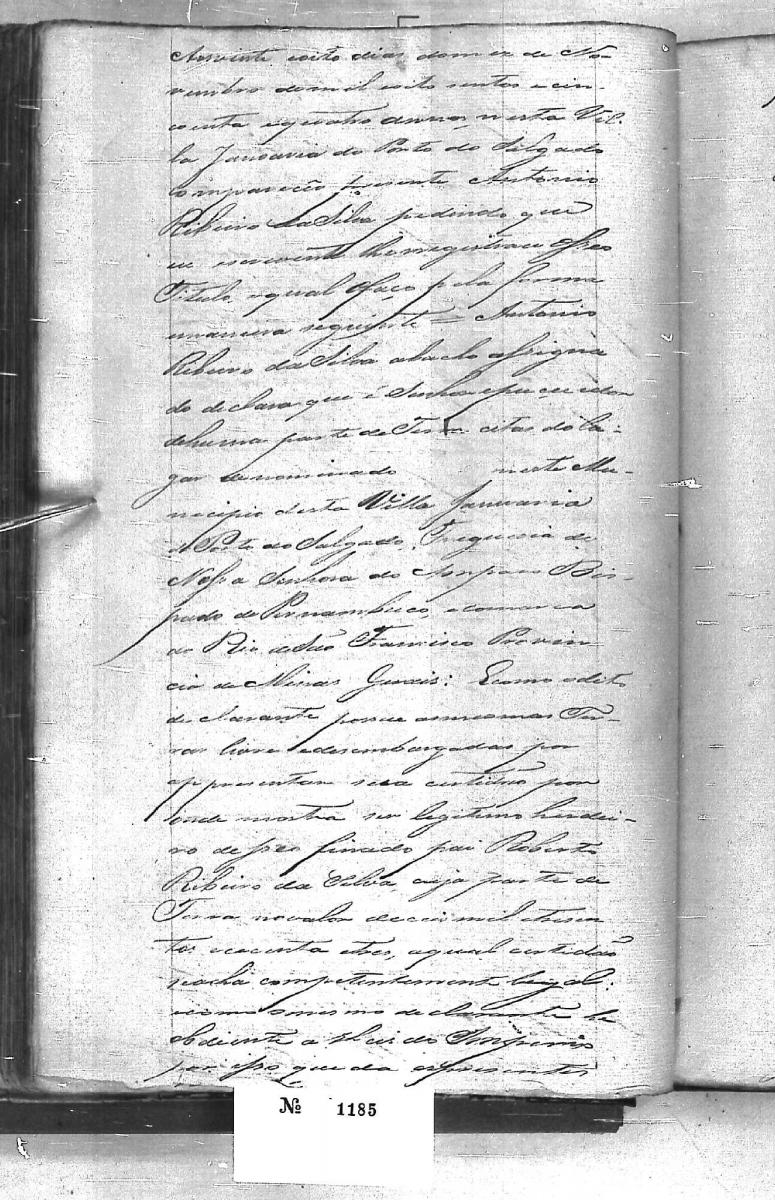 Aos vinte oito dias do mez de No-
vembro de mil oito sentos e cin-
coenta e quatro annos, nesta Vil-
la Januaria do Porto do Salgado
comparecêo prezente Antonio
Ribeiro da Silva pedindo que
eu escrevente lhe registrace o seo
Titulo, o qual o faço pela forma
e maneira seguinte = Antonio
Ribeiro da Silva abacho assigna
do declara que é Senhor e pucuidor
de huma parte de Terra citas do lu-
gar denominado neste Mu-
nicipio desta Villa Januaria
do Porto do Salgado, Freguezia de
Nossa Senhora do Amparo Bis-
pado de Pernambuco, e comarca
do Rio de São Francisco Provin
cia de Minas Geraes: E como o dito
declarante pocue as mesmas Ter-
ras livre e desembargadas por
appresentar sua certidão por
onde mostra ser legitimo herdei-
ro de seo finado pai Roberto
Ribeiro da Silva, cuja parte de
Terra no valor de mil e trezen
tos e cecenta e tres, a qual certidão
se acha competentemente legal:
e como o mesmo declarante he
obdiente a Lei do Imperio
por isso que da apresentes